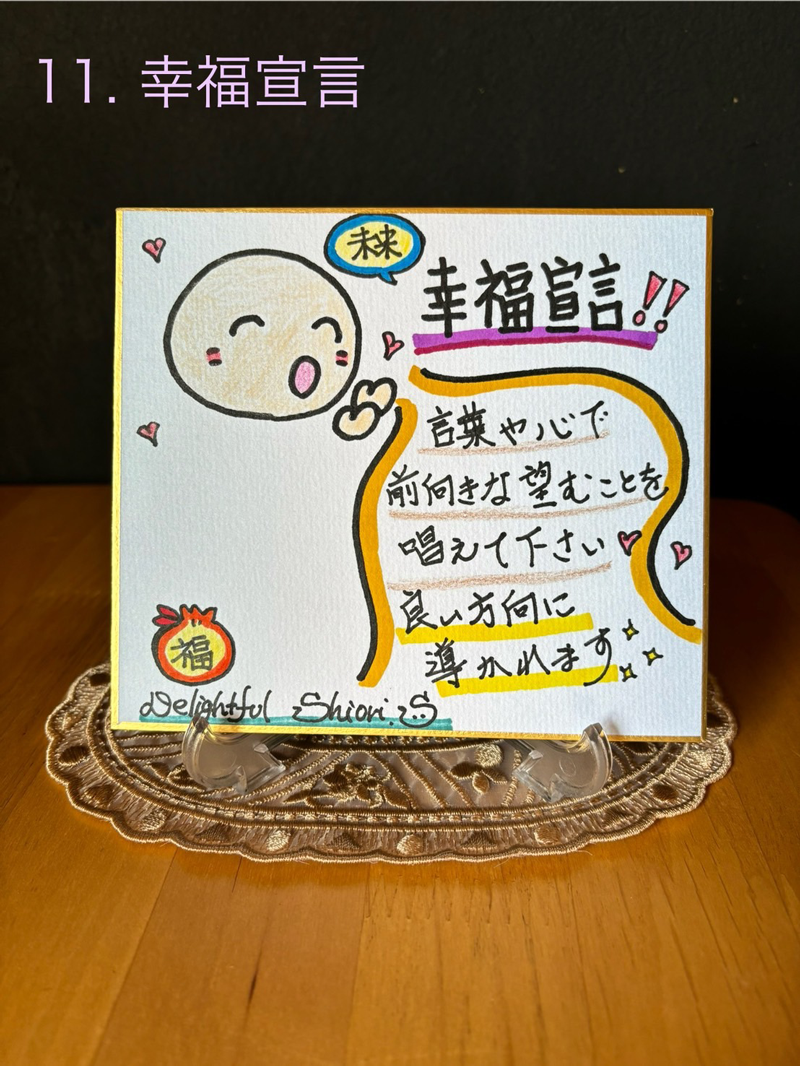 11. 幸福宣言
未来
幸福宣言!!
言葉や心で
前向きな望むことを
唱えて下さい
良い方向に
導かれます
福
Delightful Shiori.S